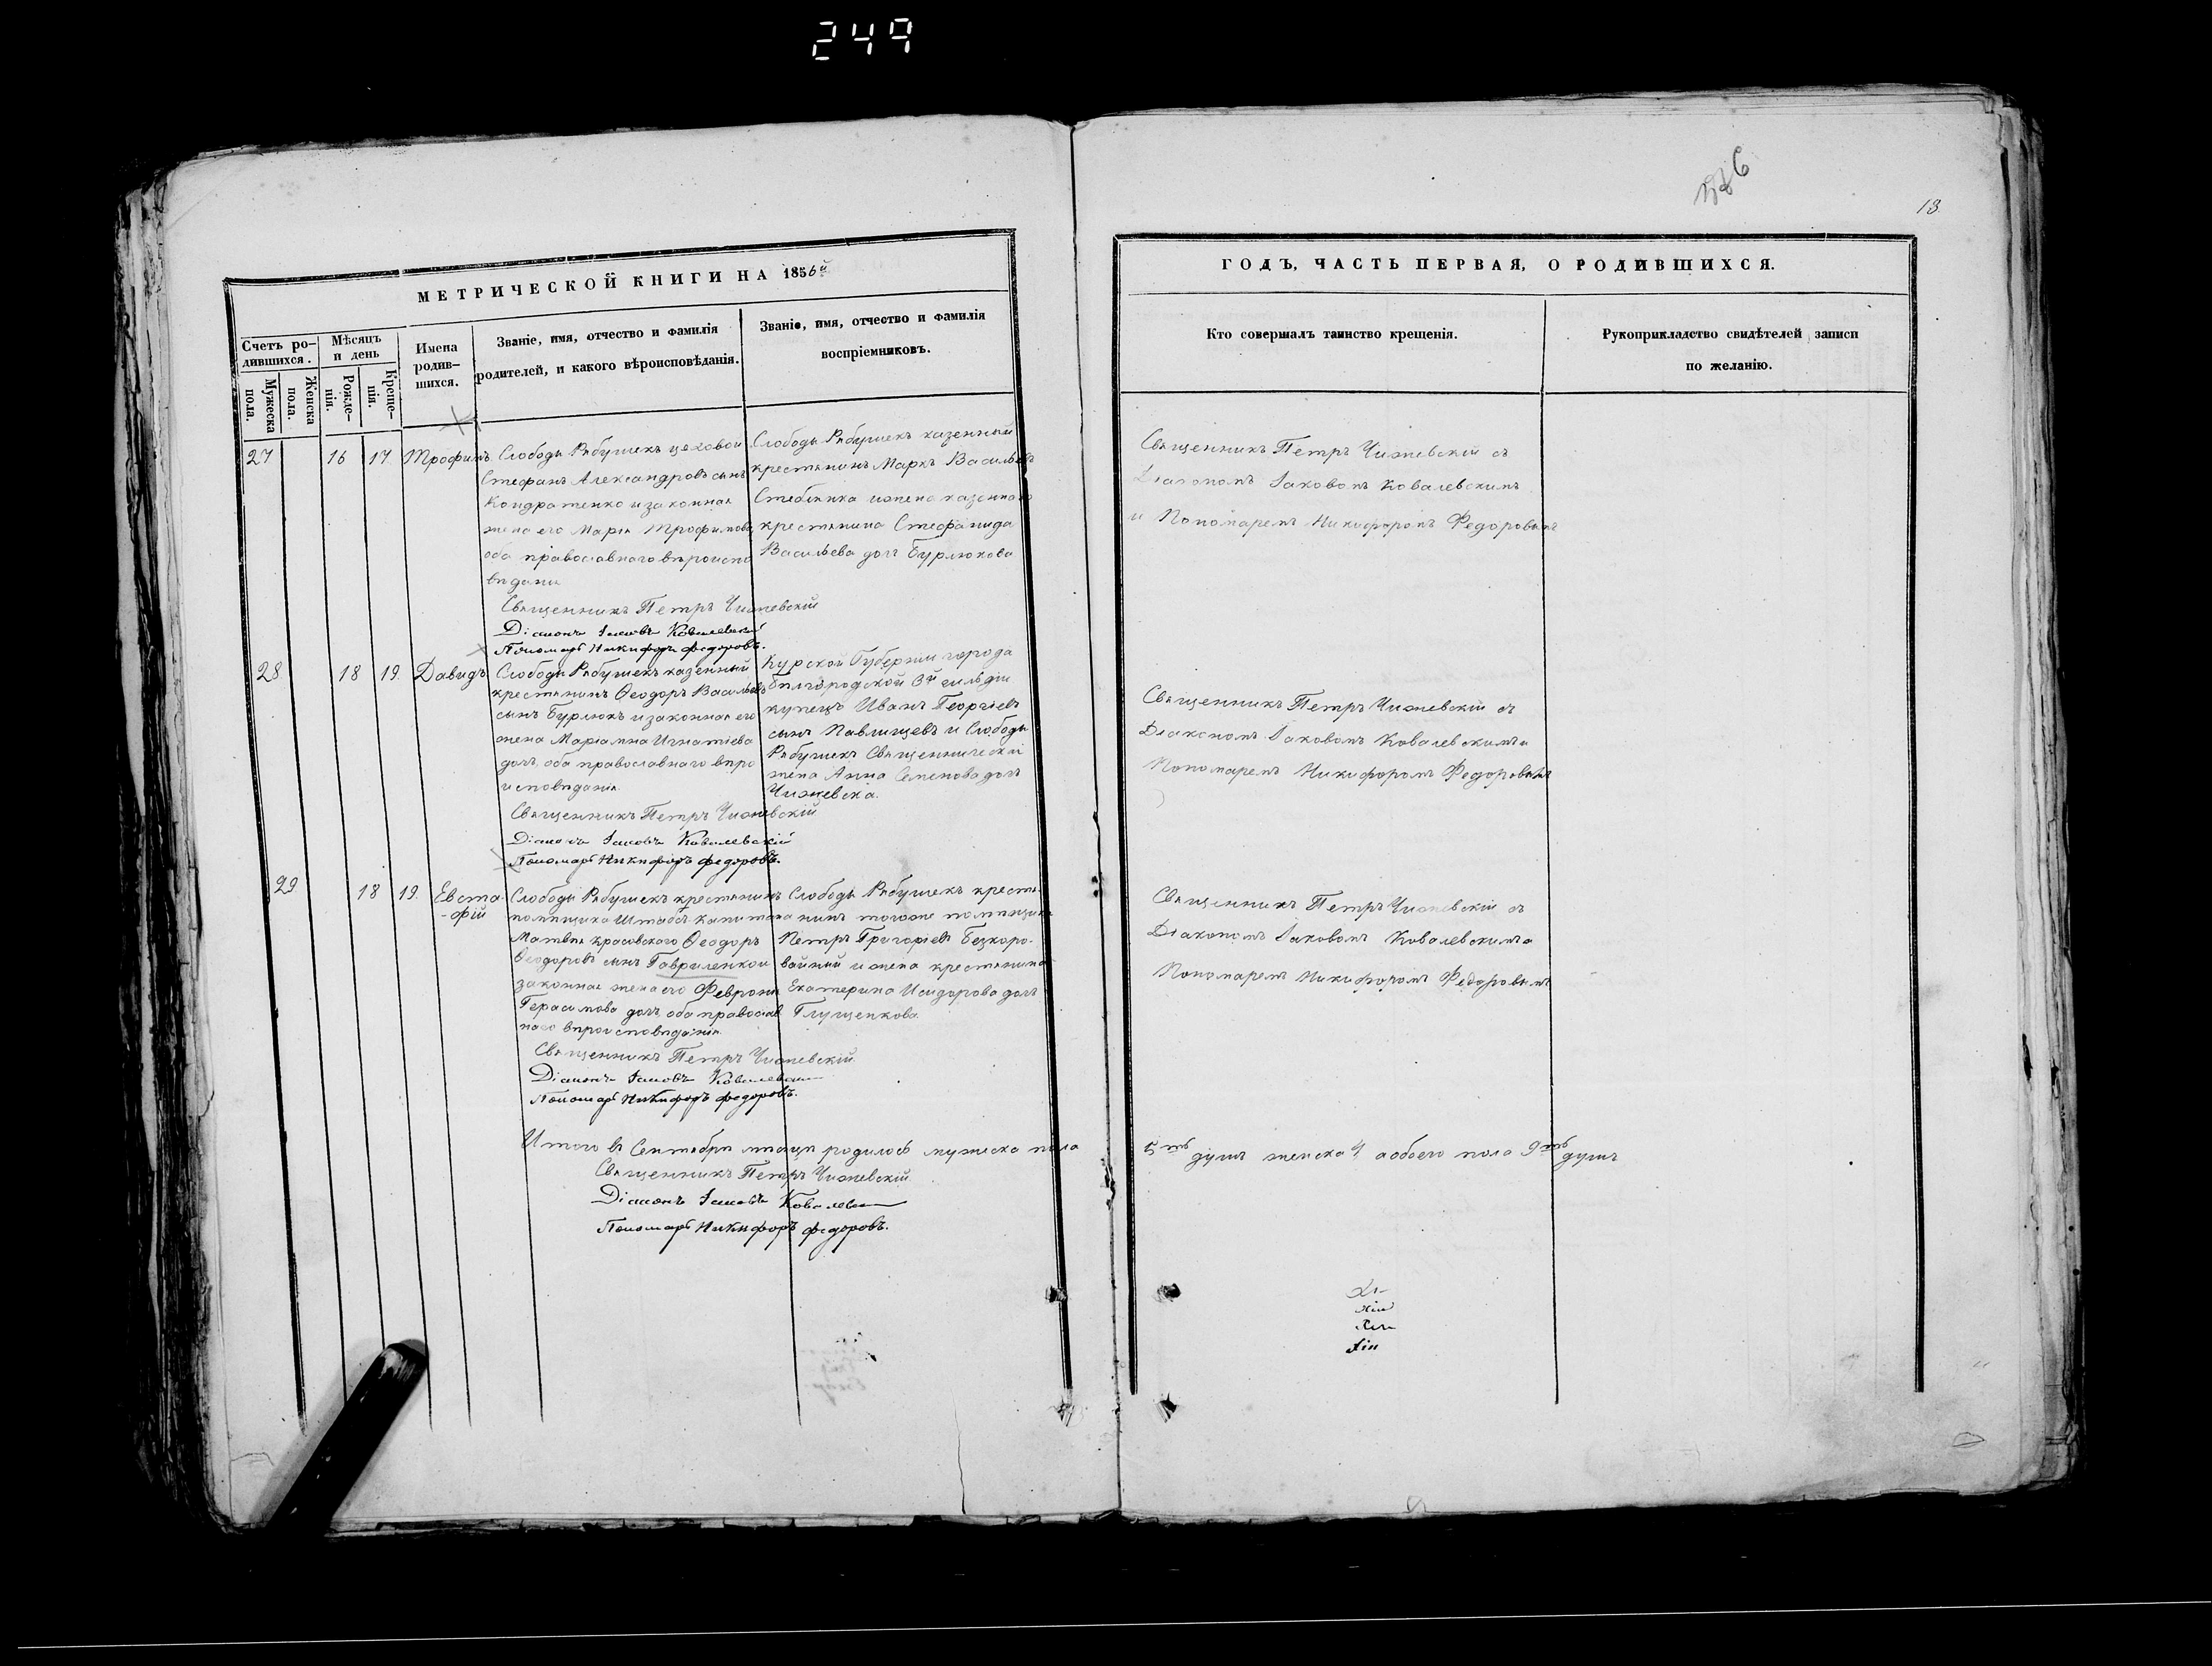 249
576
13
МЕТРИЧЕСКОЙ КНИГИ НА 1856й
Счетъ ро-
дившихся.
Мужеска
пола.
Женска
пола.
Мѣсяцъ
и день
Рожде-
нія.
Креще-
нія.
Имена
родив-
шихся.
Званіе, имя, отчество и фамилія
родителей, и какого вѣроисповѣданія.
Званіе, имя, отчество и фамилія
воспріемниковъ.
27 16 17 Трофимъ
Слободы Рябушекъ цеховой
Стефанъ Александровъ сынъ
Кондратенко и законная
жена его Марія Трофимова
оба православнаго вѣроиспо
вѣданія
Слободы Рябушекъ казенный
крестьянинъ Маркъ Васильевъ
и жена казеннаго
крестьянина Стефанида
Васильева дочь Бурлюкова
Священникъ Петръ Чижевскій
Діаконъ Іаковъ Ковалевскій
Пономарь Никифоръ Федоровъ.
28 18 19 Давидъ
Слободы Рябушекъ казенный
крестьянинъ Ѳеодоръ Васильевъ
сынъ Бурлюкъ и законная его
жена Маріанна Игнатіева
дочь, оба православнаго вѣро
исповѣданія
Курской Губерніи города
Бѣлгородской 3й гильдіи
купецъ Иванъ Георгіевъ
сынъ Павлищевъ и Слободы
Рябушекъ Священническая
жена Анна Семенова дочь
Чижевска.
Священникъ Петръ Чижевскій
Діаконъ Іаковъ Ковалевскій
Пономарь Никифоръ Федоровъ.
29 18 19. Евста-
-фій
Слободы Рябушекъ крестьянинъ
помѣщика Штабсъ-Капитана
Матвѣя Красовского Ѳеодоръ
Ѳеодоровъ сынъ Гавриленко и
законная жена его Февронія
Герасимова дочь, оба православ
наго вѣроисповѣданія
Слободы Рябушекъ крестья-
нинъ тогоже помѣщика
Петръ Григоріевъ Безкоро-
вайный и жена крестьянина
Екатерина Исидорова дочь
Глущенкова.
Священникъ Петръ Чижевскій
Діаконъ Іаковъ Ковалевскій
Пономарь Никифоръ Федоровъ.
Итого въ Сентябрѣ мѣсяцѣ родилось мужеска пола
Священникъ Петръ Чижевскій
Діаконъ Іаковъ Ковалевскій
Пономарь Никифоръ Федоровъ.
ГОДЪ, ЧАСТЬ ПЕРВАЯ, О РОДИВШИХСЯ.
Кто совершалъ таинство крещенія.
Рукоприкладство свидѣтелей записи
по желанію.
Священникъ Петръ Чижевскій съ
Діакономъ Іаковомъ Ковалевскимъ
и Пономаремъ Никифоромъ Федоровымъ
Священникъ Петръ Чижевскій съ
Діакономъ Іаковомъ Ковалевскимъ и
Пономаремъ Никифоромъ Федоровымъ
Священникъ Петръ Чижевскій съ
Діакономъ Іаковомъ Ковалевскимъ и
Пономаремъ Никифоромъ Федоровымъ
5ть душъ женска 4 а обоего пола 9ть душъ